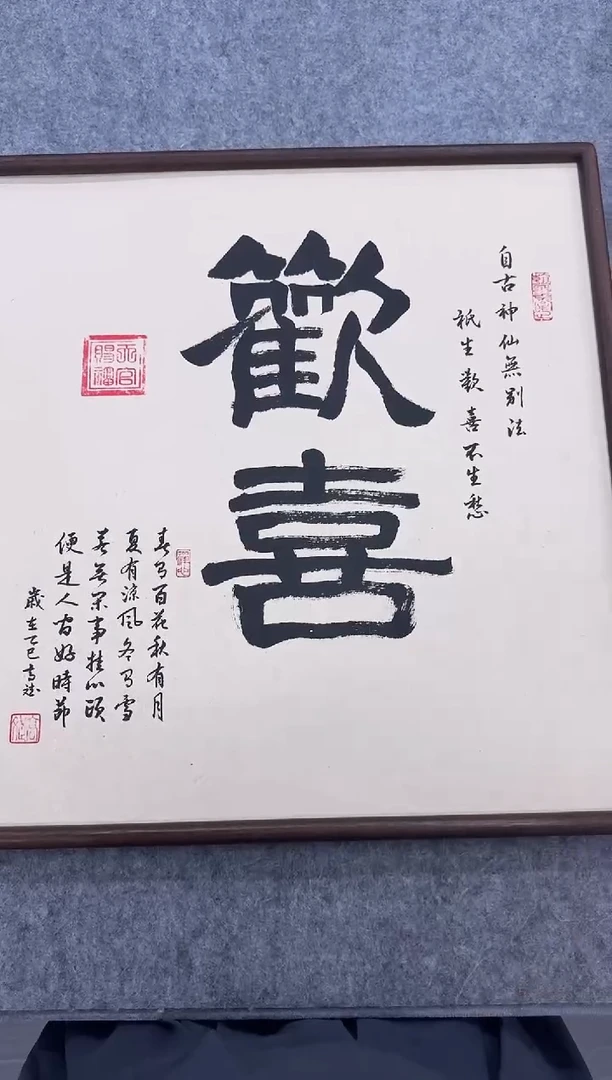 自古神仙無別法
祇生歡喜不生愁
歡喜
天官賜福
春有百花秋有月
夏有涼風冬有雪
若無閑事挂心頭
便是人間好時節
歲在乙巳